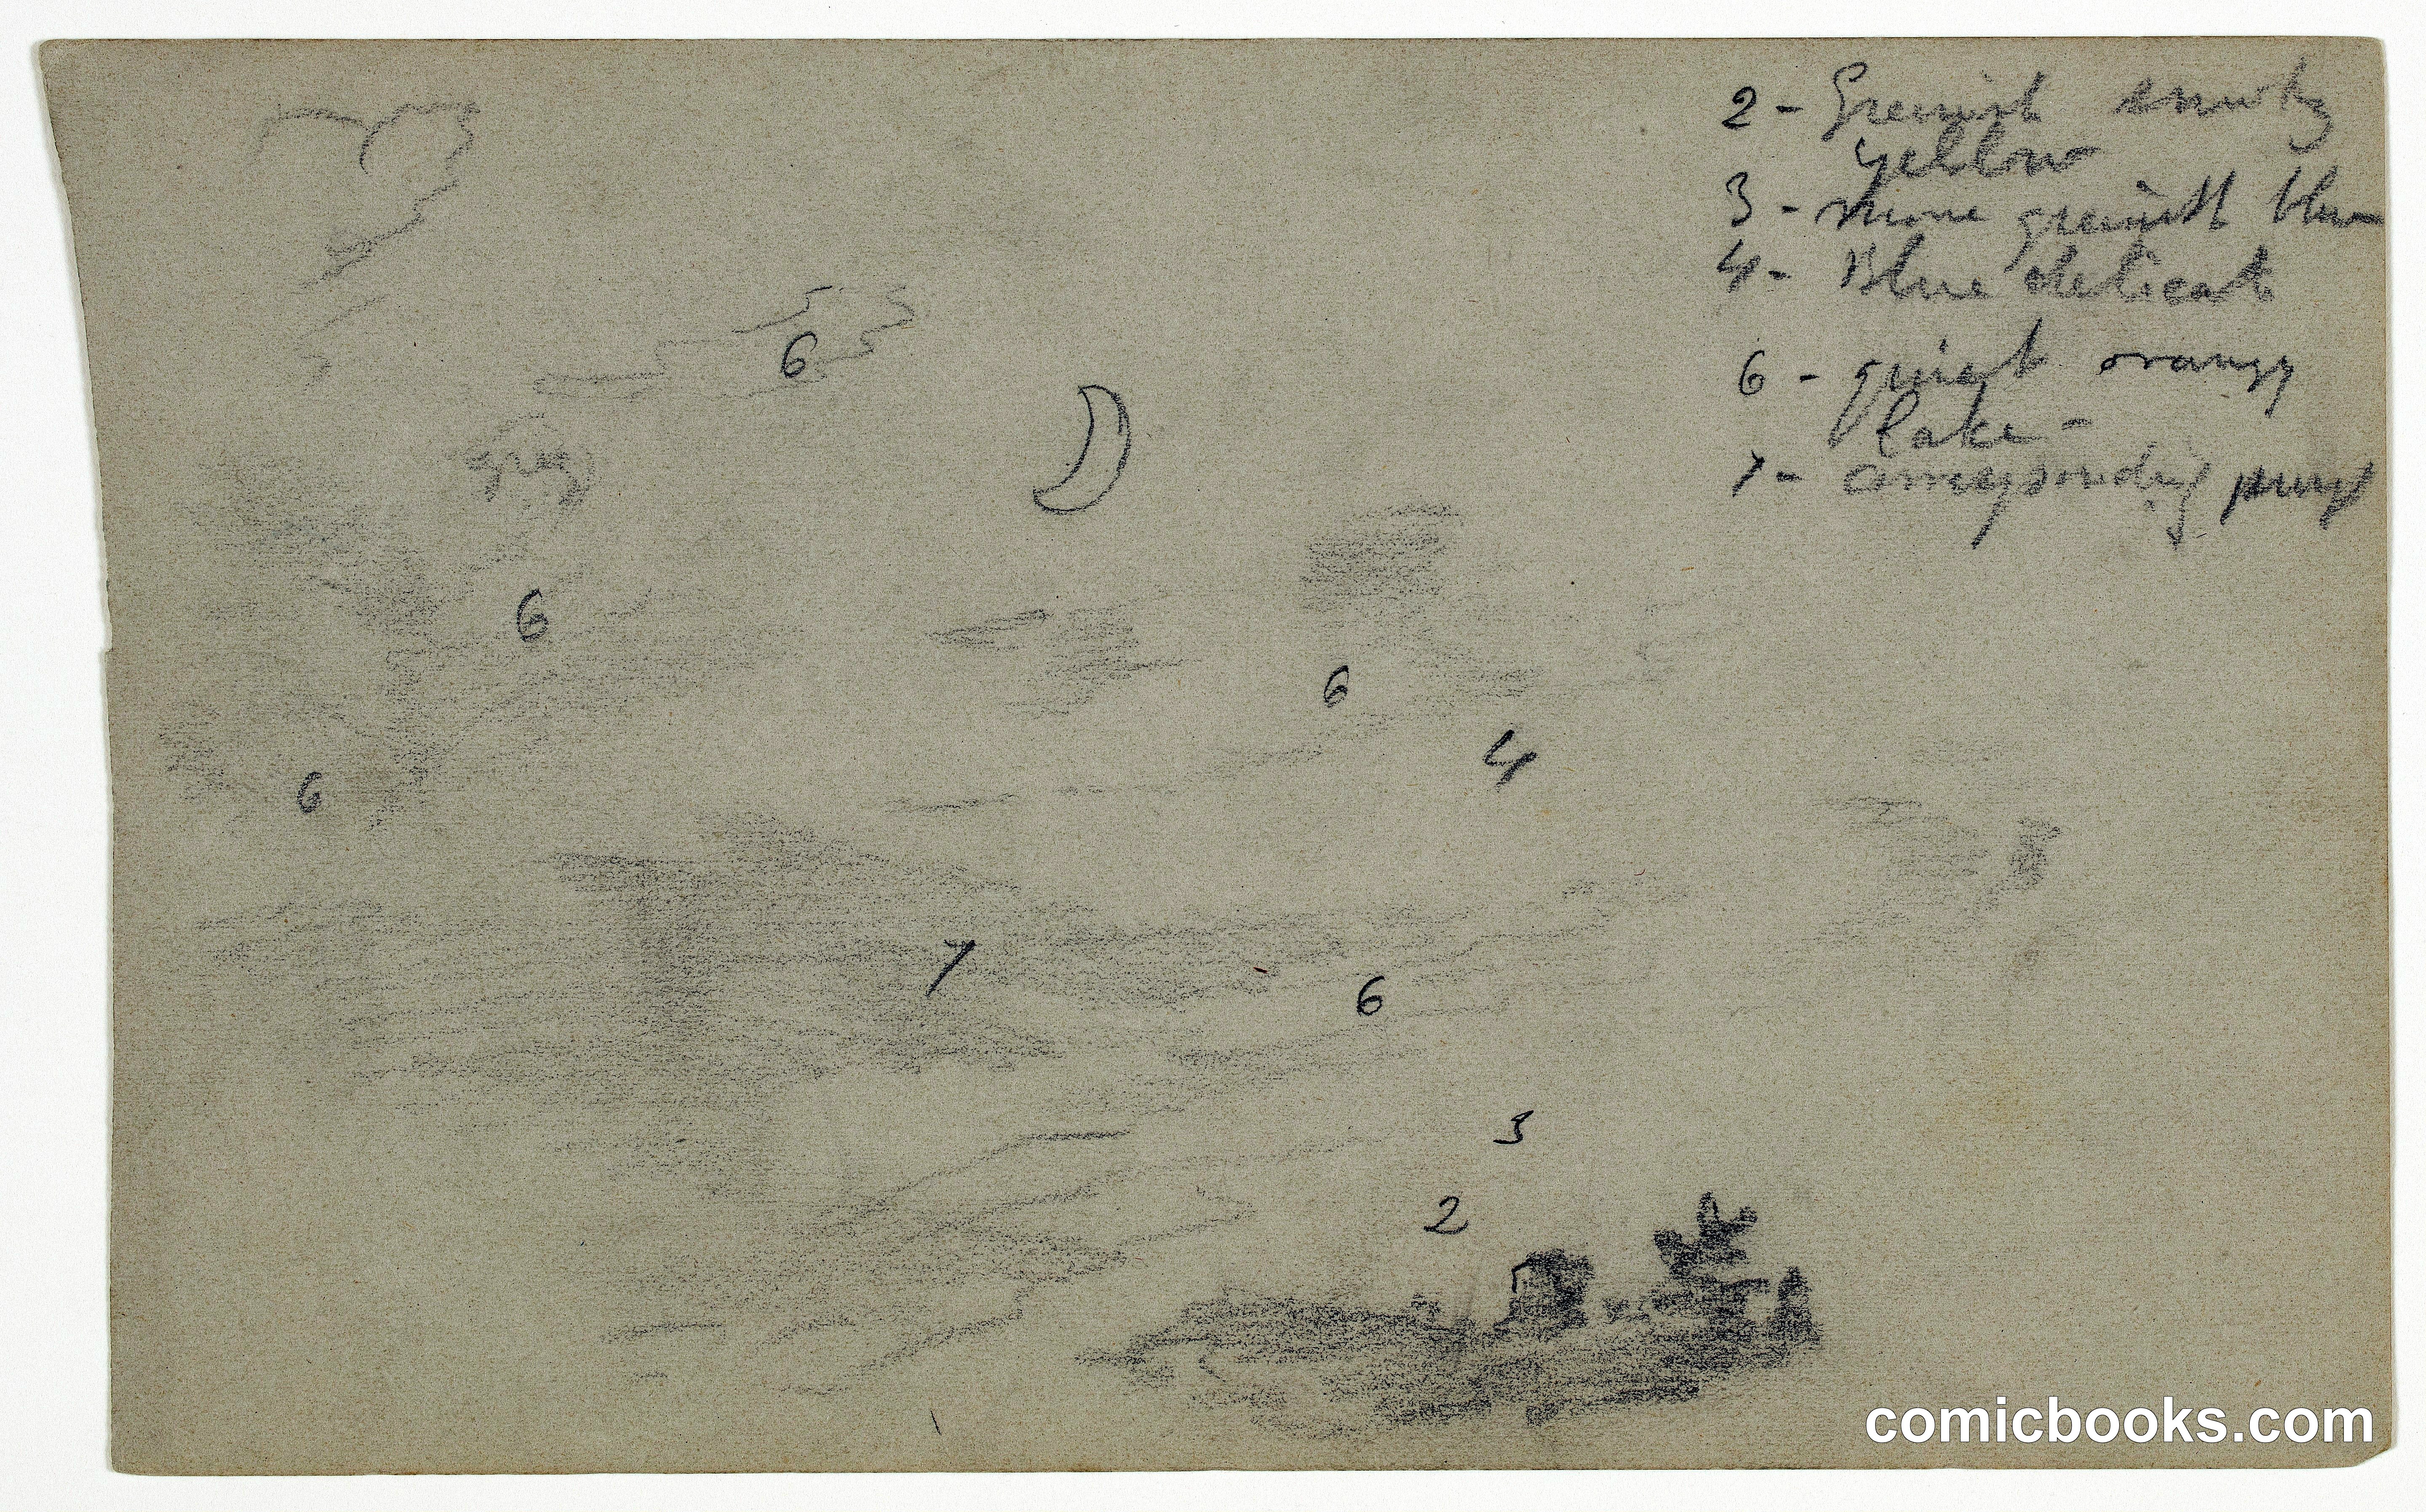 2 - Greenish smoky
yellow
3 - more greenish blue
4 - Blue delicate
6 - quiet orange
lake -
7 - corresponding purp
6
gray
6
6
4
6
7
6
3
2
comicbooks.com